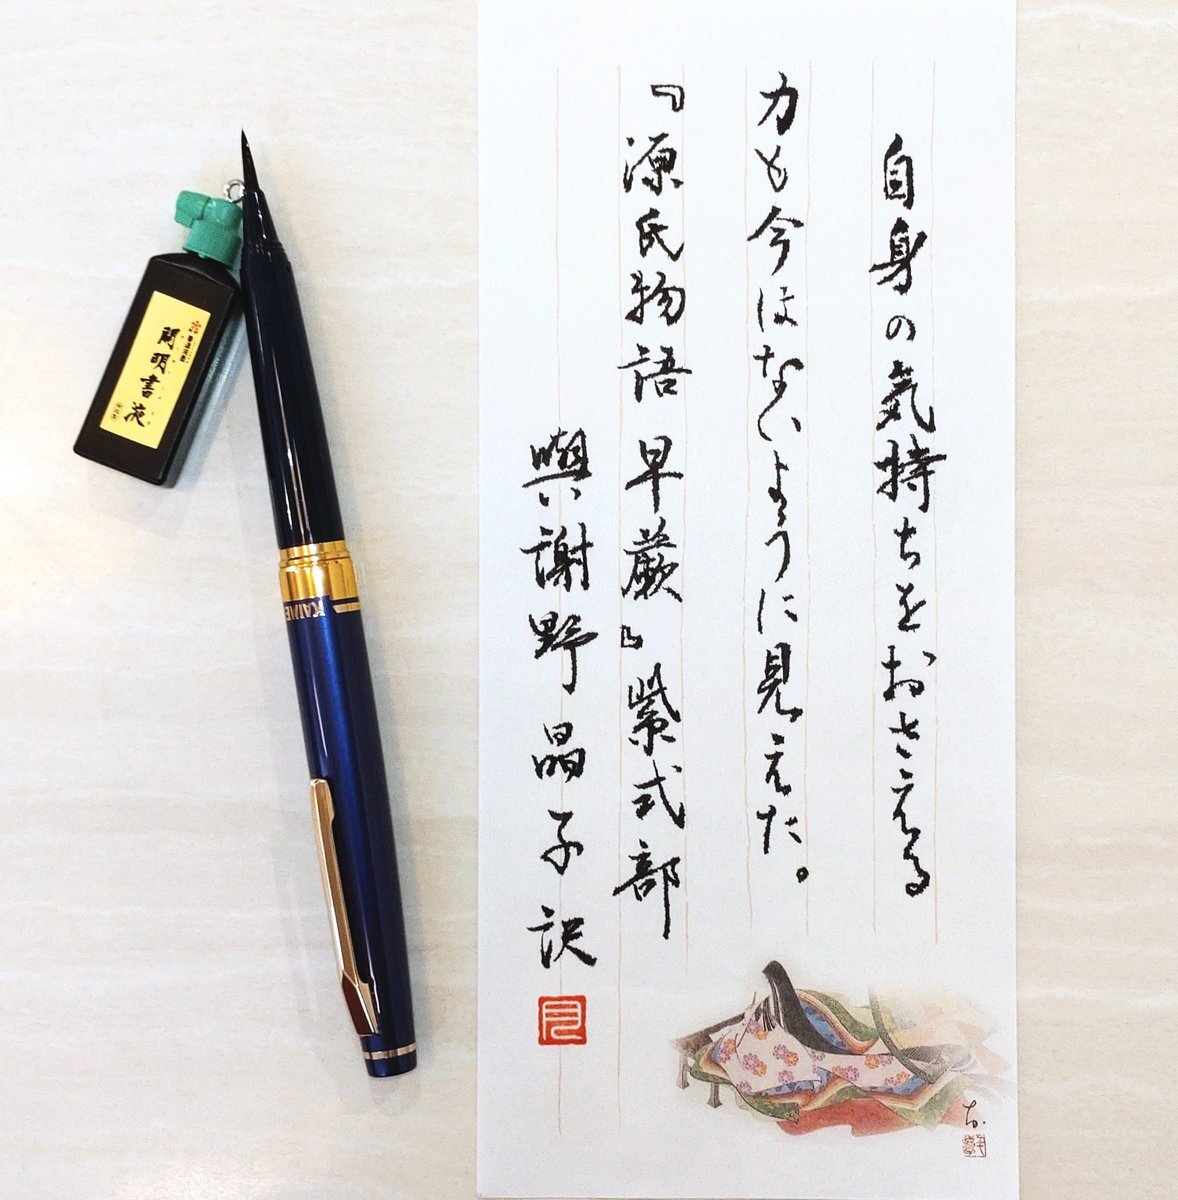 自身の気持ちをおさえる
力も今はないように見えた。
『源氏物語 早蕨』紫式部
與謝野晶子訳
開明書液
KAIME